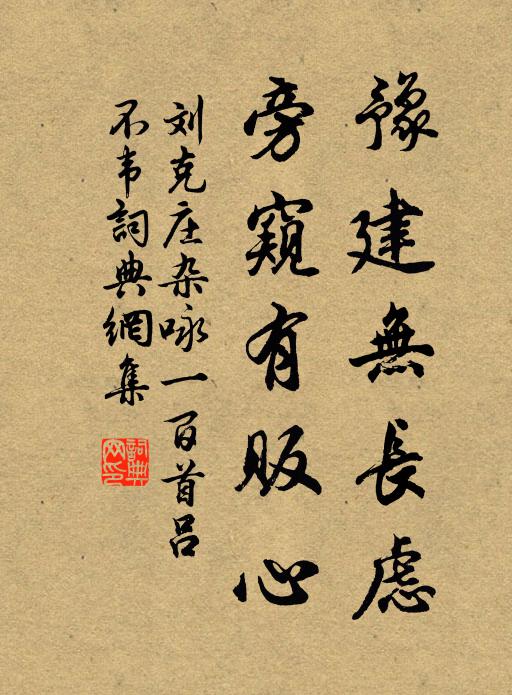 豫建無長慮
旁窺有販心
刘克庄杂咏一百首吕
不韦詞典網集
詞典
网印